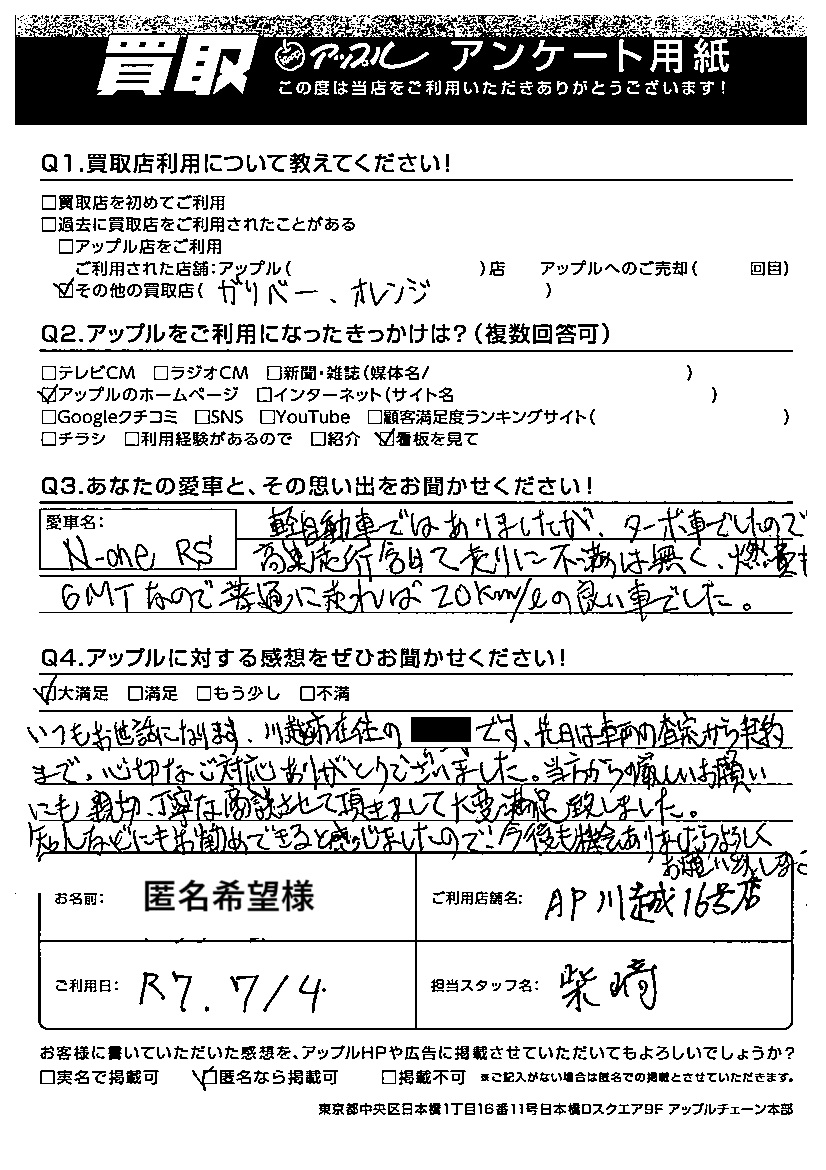 買取 アップル アンケート用紙
この度は当店をご利用いただきありがとうございます!
Q1.買取店利用について教えてください!
□買取店を初めてご利用
□過去に買取店をご利用されたことがある
□アップル店をご利用
ご利用された店舗:アップル( )店 アップルへのご売却( 回目)
☑その他の買取店( ガリバー、オレンジ )
Q2.アップルをご利用になったきっかけは?(複数回答可)
□テレビCM □ラジオCM □新聞・雑誌(媒体名/ )
☑アップルのホームページ □インターネット(サイト名 )
□Googleクチコミ □SNS □YouTube □顧客満足度ランキングサイト( )
□チラシ □利用経験があるので □紹介 ☑看板を見て
Q3.あなたの愛車と、その思い出をお聞かせください!
愛車名: 軽自動車ではありましたが、ターボ車でしたので
N-one RS 高速走行含めて走りに不満は無く、燃費も
6MTなので普通に走れば20km/ℓの良い車でした。
Q4.アップルに対する感想をぜひお聞かせください!
☑大満足 □満足 □もう少し □不満
いつもお世話になります。川越市在住の です、先日は車両の査定から契約
まで、心切なご対応ありがとうございました。当方からの厳しいお願い
にも親切、丁寧な商談させて頂きまして大変満足致しました。
知人などにもお勧めできると感じましたので、今後も機会ありましたらよろしく
お願い致します。
お名前: 匿名希望様 ご利用店舗名: AP川越16号店
ご利用日: R7.7/4 担当スタッフ名: 柴崎
お客様に書いていただいた感想を、アップルHPや広告に掲載させていただいてもよろしいでしょうか?
□実名で掲載可 ☑匿名なら掲載可 □掲載不可 ※ご記入がない場合は匿名での掲載とさせていただきます。
東京都中央区日本橋1丁目16番11号日本橋ロスクエア9F アップルチェーン本部